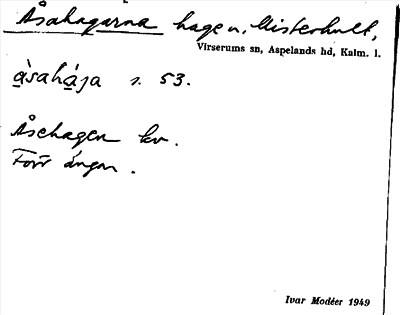 Åsahagarna hage u. Misterhult,
Virserums sn, Aspelands hd, Kalm. l.
å̱`sahå̱`ja s. 53.
Åsehagen kv.
Förr ängar.
Ivar Modéer 1949